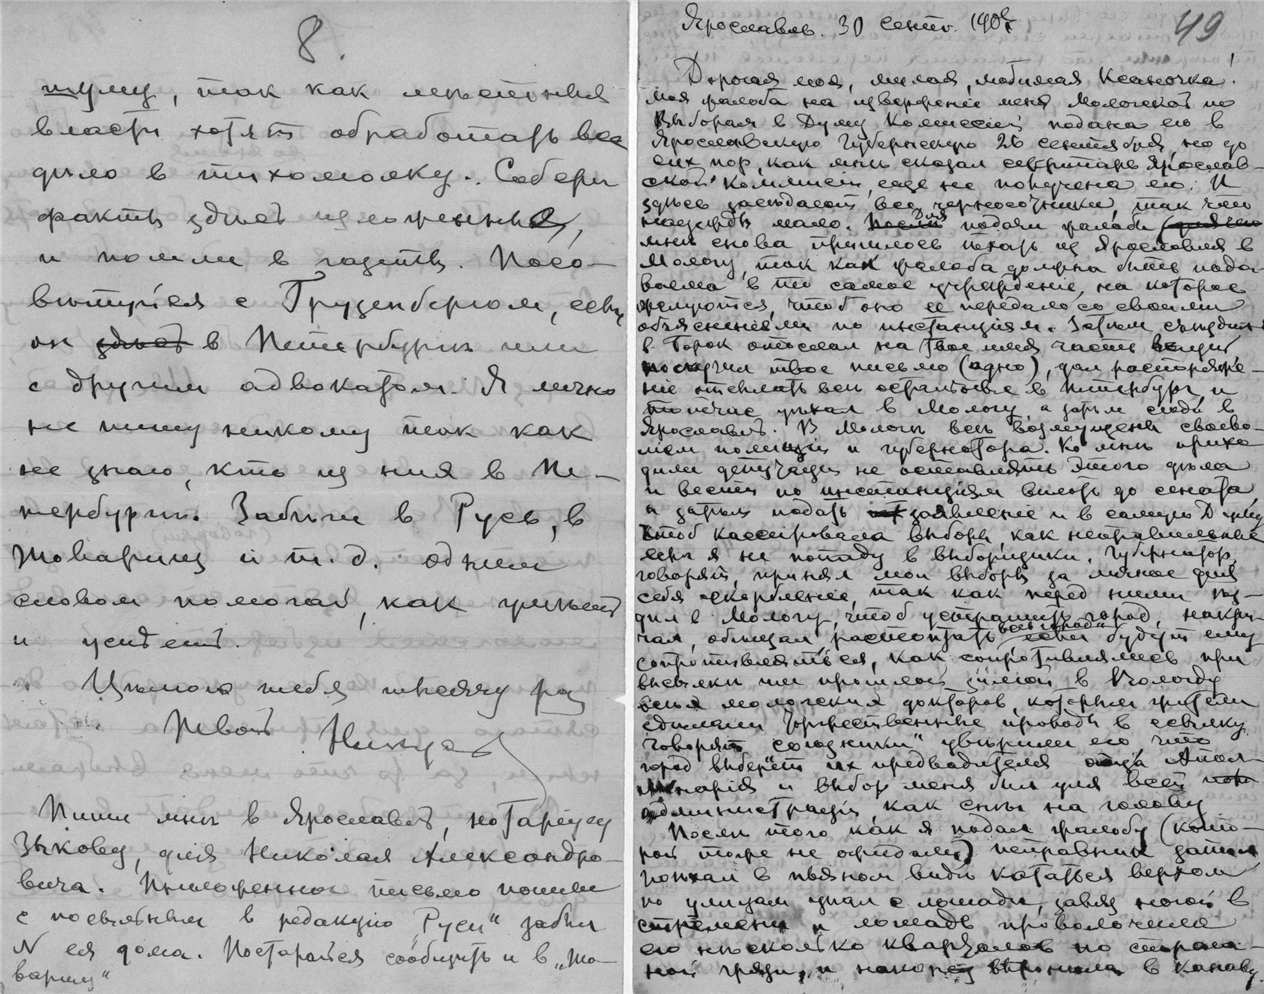 8.
шуму, так как мѣстныя
власти хотят обработать все
дѣло в тихомолку. Собери
факты здѣсь изложенные,
и пошли в газеты. Посо-
вѣтуйся с Грузенбергом, если
он здѣсь в Петербургѣ или
с другим адвокатом. Я лично
не пишу никому так как
не знаю, кто из них в Пе-
тербургѣ. Забѣги в Русь, в
Товарищ и т. д. одним
словом помогай, как умѣешь
и успѣешь.
Цѣлую тебя тысячу раз
Твой
Пиши мнѣ в Ярославль, нотариусу
Зыкову, для Николая Александро-
вича. Приложенное письмо пошли
с посыльным в редакцію „Руси“ забыл
N ея дома. Постарайся сообщить и в „То-
варищ“
49
Ярославль. 30 сент. 190
Дорогая моя, милая, любимая Ксаночка!
Моя жалоба на изверженіе меня Мологской по
Выборам в Думу Комиссіей подана ею в
Ярославскую Губернскую 26 сентября, но до
сих пор, как мнѣ сказал секретарь Ярослав-
ской Коммисіи, еще не получена ею. И
здѣсь засѣдают все черносотенники, так что
надежды мало. Для подачи жалобы
мнѣ снова пришлось ѣхать из Ярославля в
Мологу, так как жалоба должна быть пода-
ваема в то самое учрежденіе, на которое
жалуются, чтоб оно ее передало со своими
объясненіями по инстанціям. Затѣм съѣздил
в Борок отослал на твое имя часть вещей
получил твое письмо (одно), дал распоряже-
ніе отсылать всѣ остальные в Петербург, и
тотчас уѣхал в Мологу, а затѣм сюда в
Ярославль. В Мологѣ всѣ возмущены своево-
ліем полиціи и губернатора. Ко мнѣ прихо-
дили депутаціи не оставлять этого дѣла
и вести по инстанціям вплоть до сената,
а затѣм подать заявленіе и в самую Думу
чтоб кассировала выборы, как неправильные
если я не попаду в выборщики. Губернатор,
говорят, принял мои выборы за личное для
себя оскорбленіе, так как перед ними ѣз-
дил в Мологу, чтоб устрашить город, накри-
чал, обѣщал растоптать всѣ если будут ему
сопротивляться, как сопротивлялись при
высылкѣ им прошлой зимой в Вологду
всѣх мологских докторов, которым жители
сдѣлали торжественные проводы в ссылку.
Говорят „союзники“ увѣрили его, что
город выберет их предводителя отца Апол-
линарія и выбор меня был для всей
администраціи, как снѣг на голову.
Послѣ того как я подал жалобу (кото-
рой тоже не ожидали) исправник запил
поѣхал в пьяном видѣ кататься верхом
по улицам упал с лошади, завяз ногой в
стремени и лошадь проволочила
его нѣсколько кварталов по страш-
ной грязи, и наконец выронила в канаву.